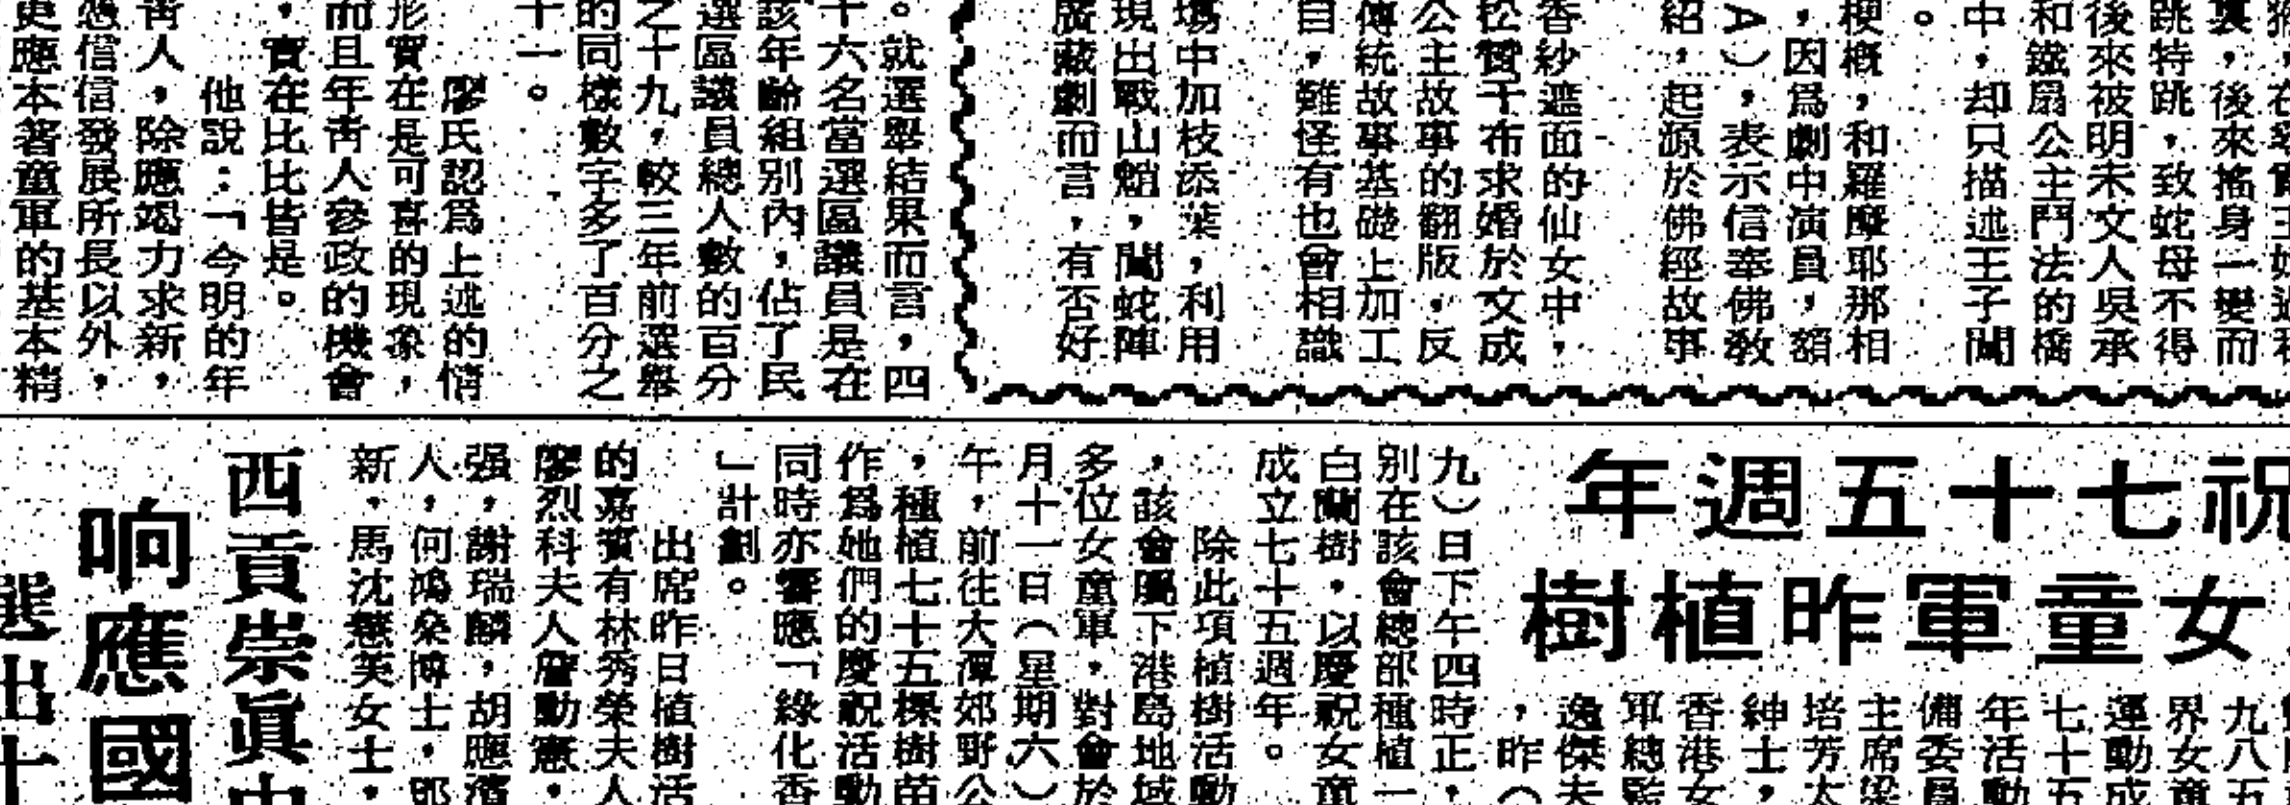 裏，後來搖身一變而
跳特跳，致蛇母不得
後來被明末文人吳承
和鐵扇公主鬥法的橋
中，却只描述王子鬪
。
梗概，和羅摩耶那相
，因爲劇中演員，額
A），表示信奉佛敎
紹，起源於佛經故事
香紗遮面的仙女中，
松贊干布求婚於文成
公主故事的翻版，反
傳統故事基礎上加工
自，難怪有也會相識
塲中加枝添葉，利用
現出戰山魈，鬪蛇陣
廣藏劇而言，有否好
。就選舉結果而言，四
十六名當選區議員是在
該年齡組別內，佔了民
選區議員總人數的百分
之十九，較三年前選舉
的同樣數字多了百分之
十一。
廖氏認爲上述的情
形實在是可喜的現象，
而且年靑人參政的機會
，實在比比皆是。
他說：「今明的年
靑人，除應竭力求新，
憑信信發展所長以外，
更應本著童軍的基本精
祝七十五週年
女童軍昨植樹
九八五
界女童
運動成
七十五
年活動
備委員
主席梁
培芳太
紳士，
香港女
軍總監
逸傑夫
，昨（
九）日下午四時正，
別在該會總部種植一
白蘭樹，以慶祝女童
成立七十五週年。
除此項植樹活動
，該會屬下港島地域
多位女童軍，對會於
月十一日（星期六）
午，前往大潭郊野公
，種植七十五棵樹苗
作爲她們的慶祝活動
同時亦響應「綠化香
」計劃。
出席昨日植樹活
的嘉賓有林秀榮夫人
廖烈科夫人詹勳憲，
强，謝瑞麟，胡應濱
人，何鴻燊博士，鄧
新，馬沈慧英女士，
西貢崇眞中
响應國
選出十